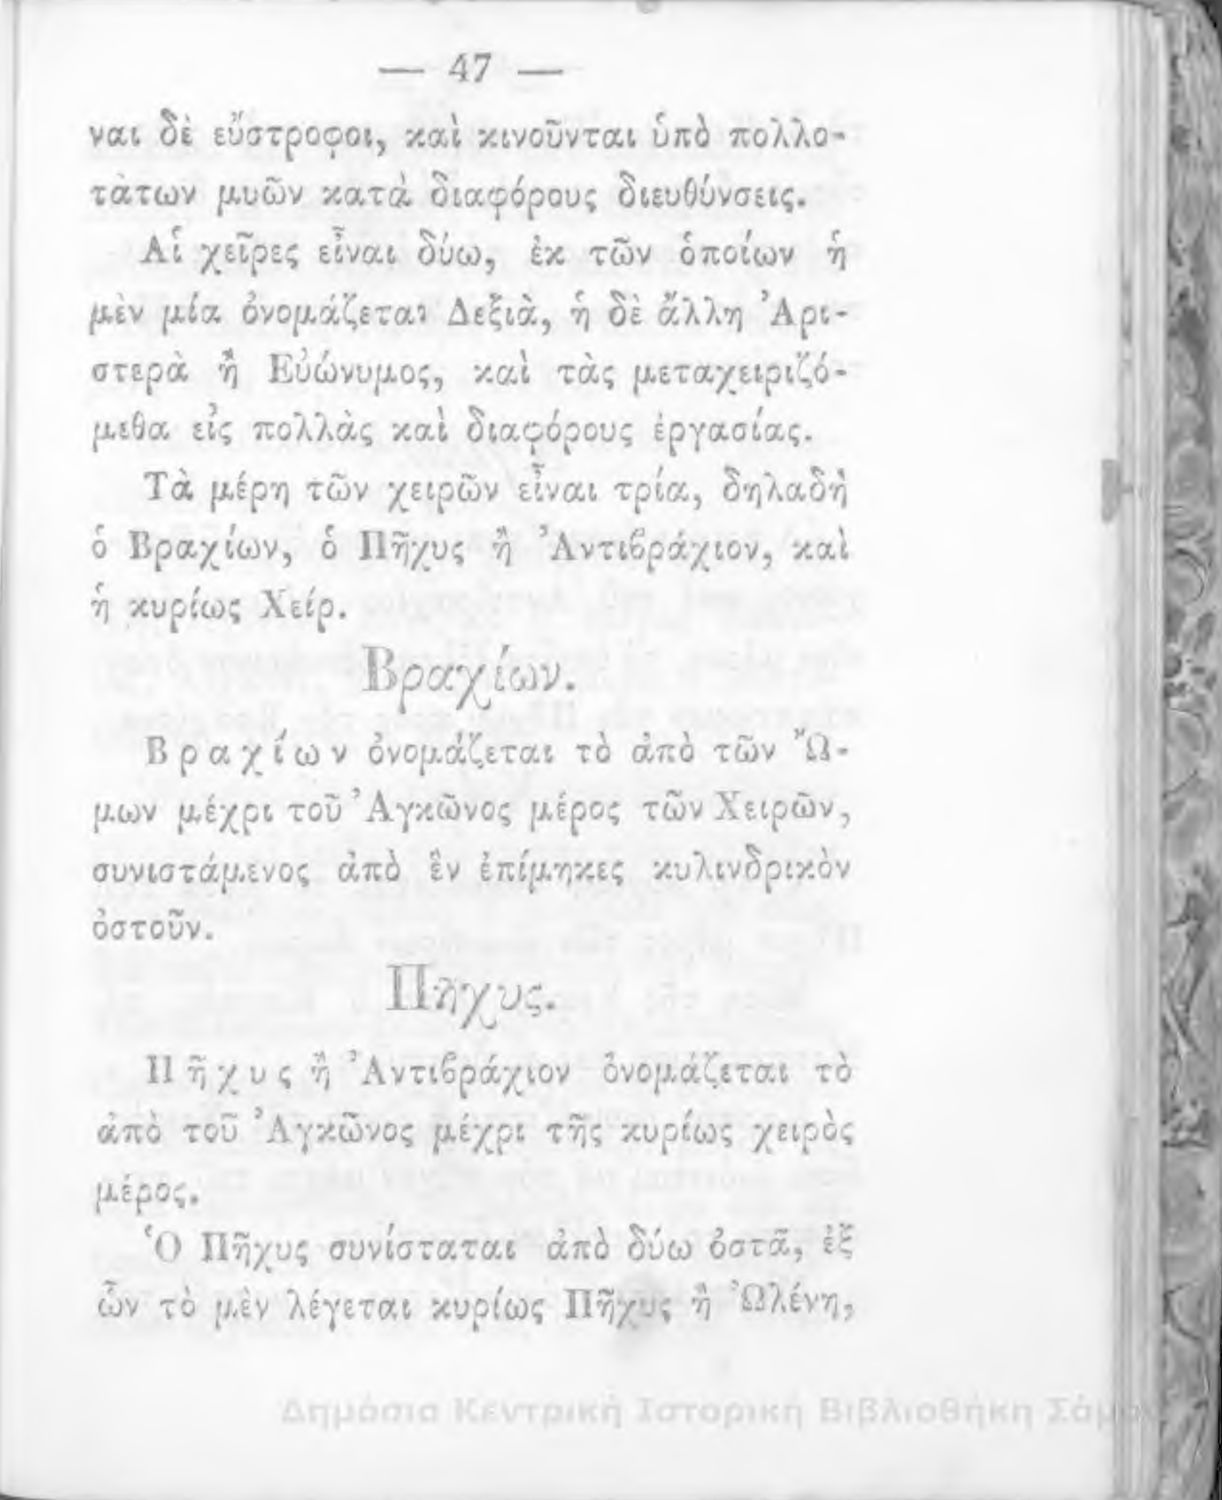 — 47 —
ναι δὲ εὔστροφοι, καὶ κινοῦνται ὑπὸ πολλο-
τάτων μυῶν κατὰ διαφόρους διευθύνσεις.
Αἱ χεῖρες εἶναι δύω, ἐκ τῶν ὁποίων ἡ
μὲν μία ὀνομάζεται Δεξιὰ, ἡ δὲ ἄλλη Ἀρι-
στερὰ ἢ Εὐώνυμος, καὶ τὰς μεταχειριζό-
μεθα εἰς πολλὰς καὶ διαφόρους ἐργασίας.
Τὰ μέρη τῶν χειρῶν εἶναι τρία, δηλαδὴ
ὁ Βραχίων, ὁ Πῆχυς ἢ Ἀντιβράχιον, καὶ
ἡ κυρίως Χείρ.
Βραχίων.
Βραχίων ὀνομάζεται τὸ ἀπὸ τῶν Ὤ-
μων μέχρι τοῦ Ἀγκῶνος μέρος τῶν Χειρῶν,
συνιστάμενος ἀπὸ ἓν ἐπίμηκες κυλινδρικὸν
ὀστοῦν.
Πῆχυς.
Πῆχυς ἢ Ἀντιβράχιον ὀνομάζεται τὸ
ἀπὸ τοῦ Ἀγκῶνος μέχρι τῆς κυρίως χειρὸς
μέρος.
Ὁ Πῆχυς συνίσταται ἀπὸ δύω ὀστᾶ, ἐξ
ὧν τὸ μὲν λέγεται κυρίως Πῆχυς ἢ Ὠλένη,
Δημόσια Κεντρική Ιστορική Βιβλιοθήκη Σάμου